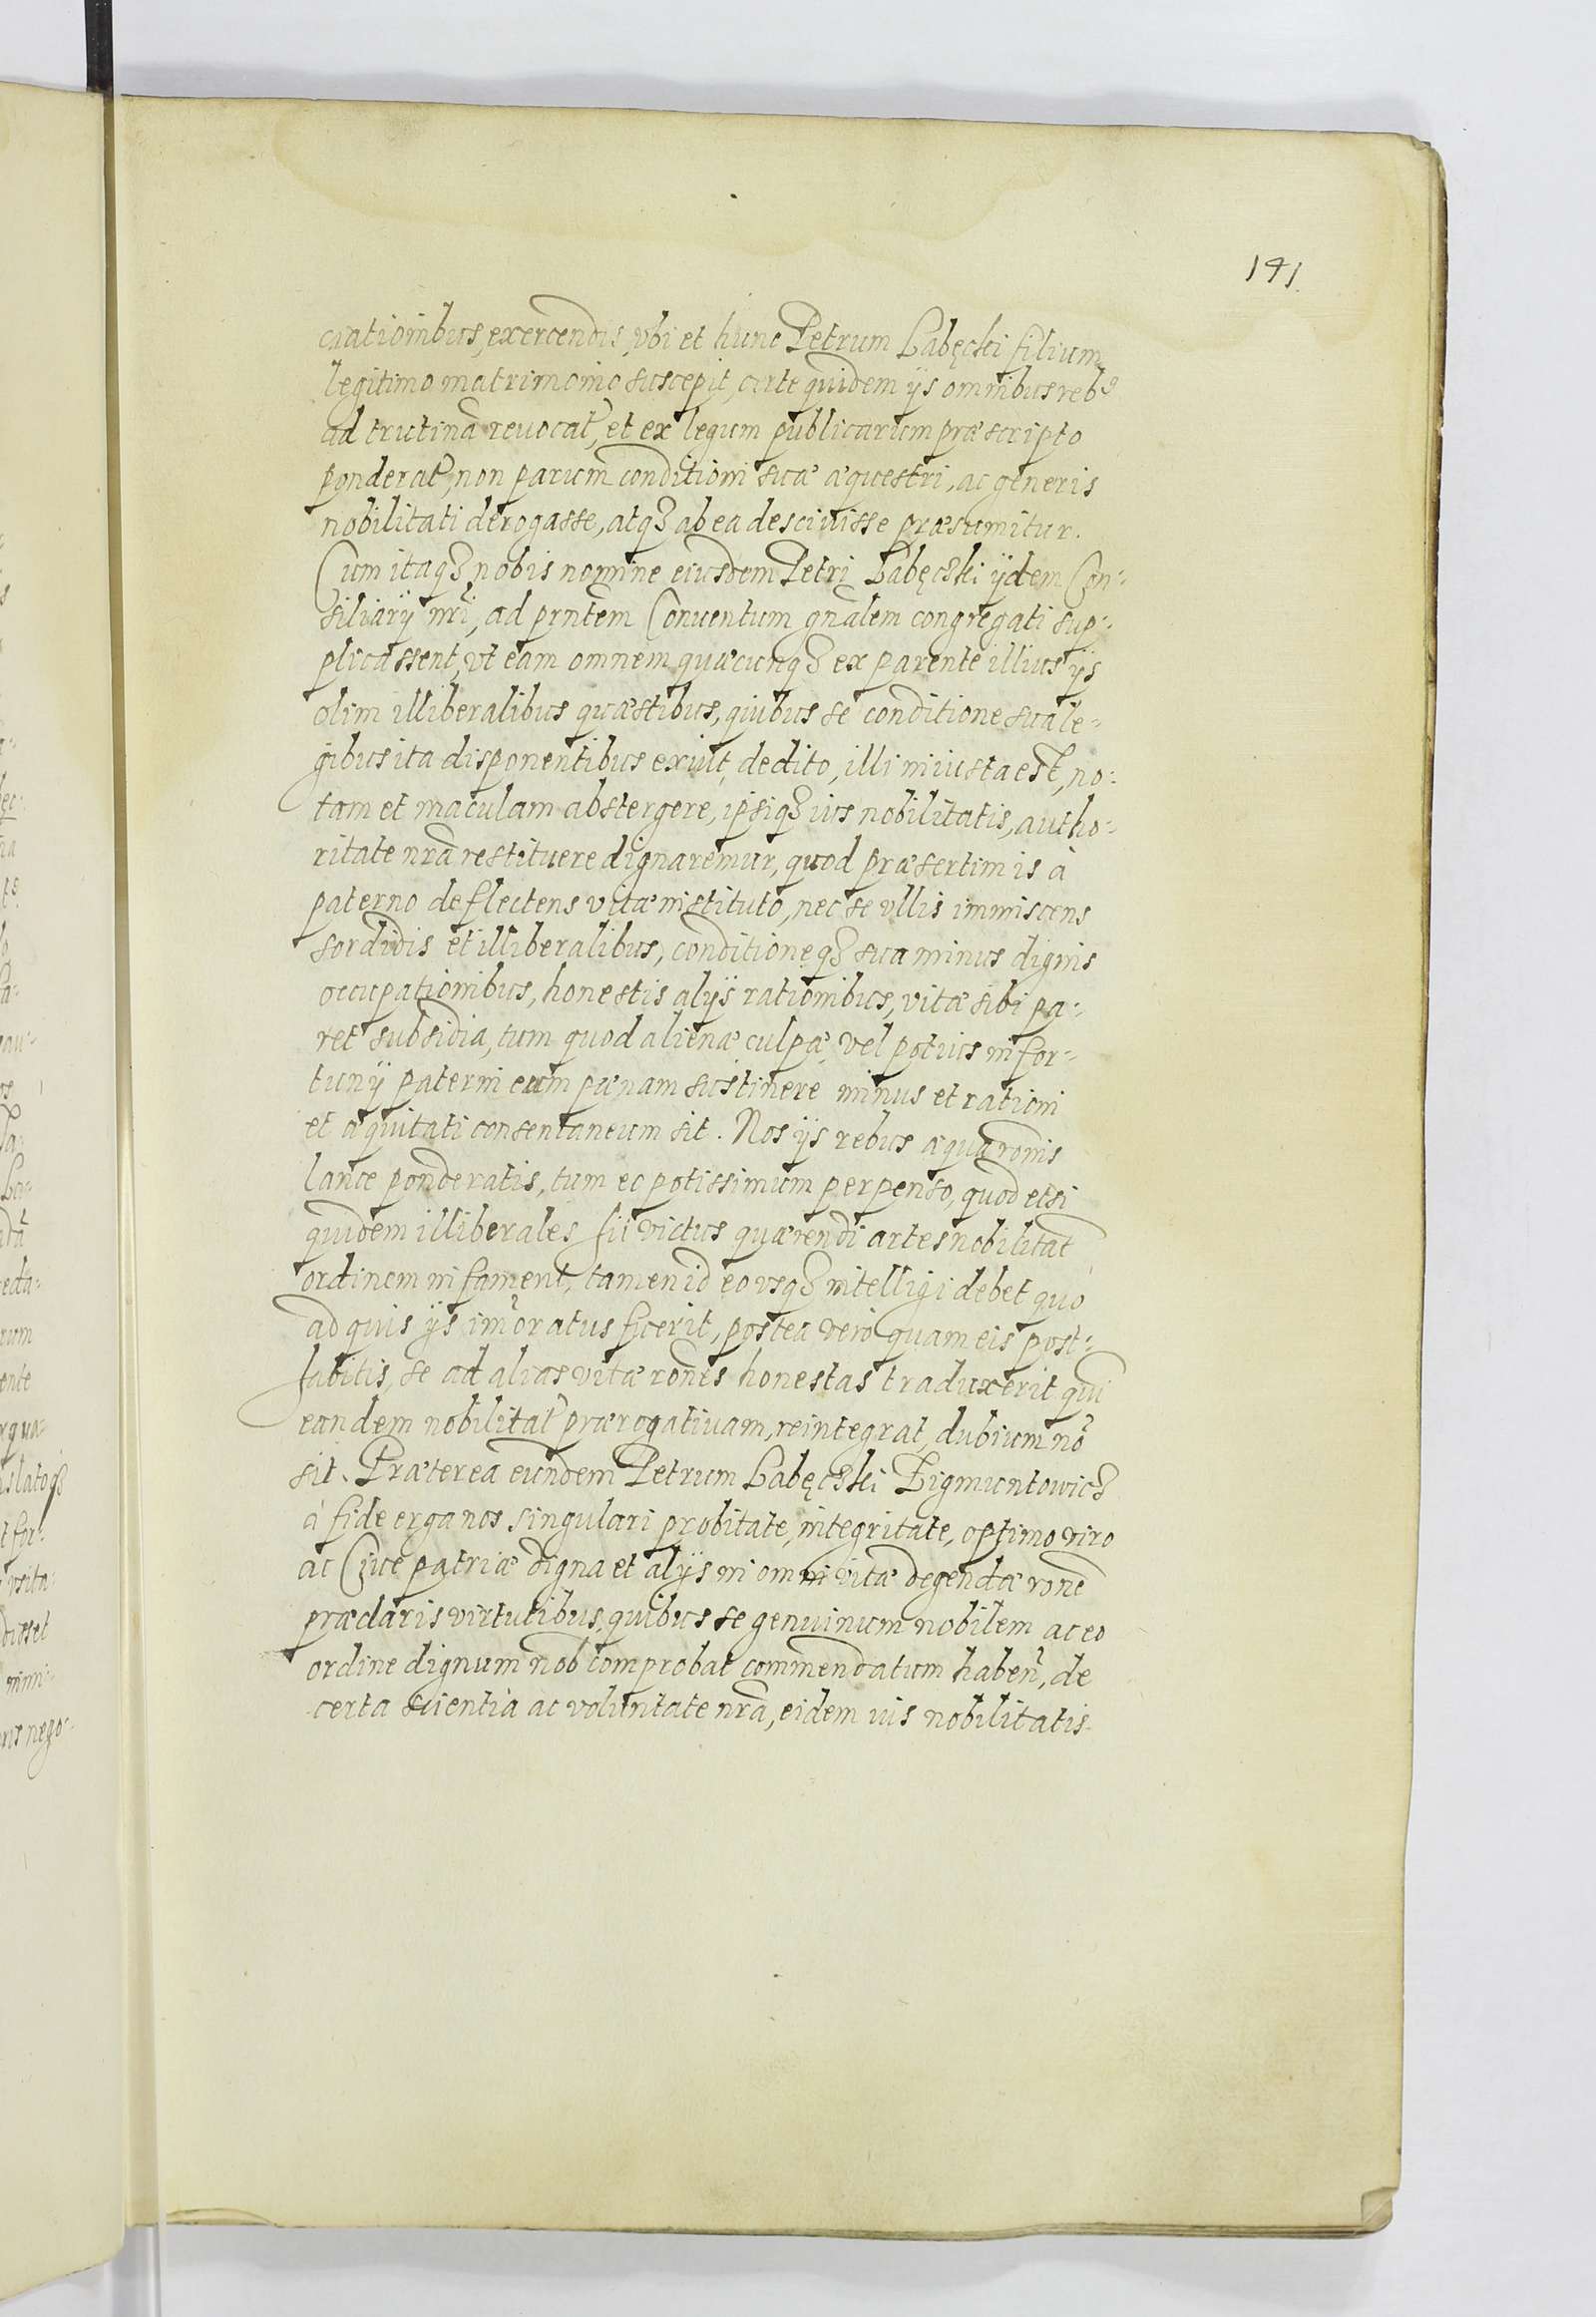 191.
ciationibus, exercendis, vbi et hunc Petrum Łabęcki filium
legitimo matrimonio suscepit, certe quidem ijs omnibus reb9
ad trutinã reuocat̃, et ex legum publicarum præscripto
ponderat̃, non parum conditioni suæ æquestri, ac generis
nobilitati derogasse, atqꝫ ab ea desciuisse præsumitur.
Cum itaqꝫ nobis nomine eiusdem Petri Łabęcʒki ijdem Con-
siliarij nr̃i, ad prñtem Conuentum gñalem congregati sup-
plicassent, vt eam omnem quæcunqꝫ ex parente illius ijs
olim illiberalibus quæstibus, quibus se conditione sua le-
gibus ita disponentibus exuit, dedito, illi iniusta est, no-
tam et maculam abstergere, ipsiqꝫ ius nobilitatis, autho-
ritate nrã restituere dignaremur, quod præsertim is à
paterno deflectens vitæ instituto, nec se vllis immiscens
sordidis et illiberalibus, conditioneqꝫ sua minus dignis
occupationibus, honestis alijs rationibus, vitæ sibi pa-
ret subsidia, tum quod alienæ culpæ vel potius infor-
tunij paterni eum pænam sustinere minus et rationi
et æquitati consentaneum sit. Nos ijs rebus æqua rõnis
lance ponderatis, tum eo potissimum perpenso, quod etsi
quidem illiberales sui victus quærendi artes nobilitat̃
ordinem infament, tamen id eo vsqꝫ intelligi debet quo
ad quis ijs im̃oratus fuerit, postea vero quam eis post-
habitis, se ad alias vitæ rõnes honestas traduxerit quĩ
eandem nobilitat̃ prærogatiuam, reintegrat, dubium nõ
sit. Præterea eundem Petrum Łabęcʒki Zigmuntowicʒ
à fide erga nos singulari probitate, integritate, optimo viro
ac Ciue patriæ digna et alijs in omni vitæ degendæ rõne
præclaris virtutibus, quibus se genuinum nobilem ac eo
ordine dignum nob̃ comprobat commendatum habeñ, de
certa scientia ac voluntate nrã, eidem ius nobilitatis